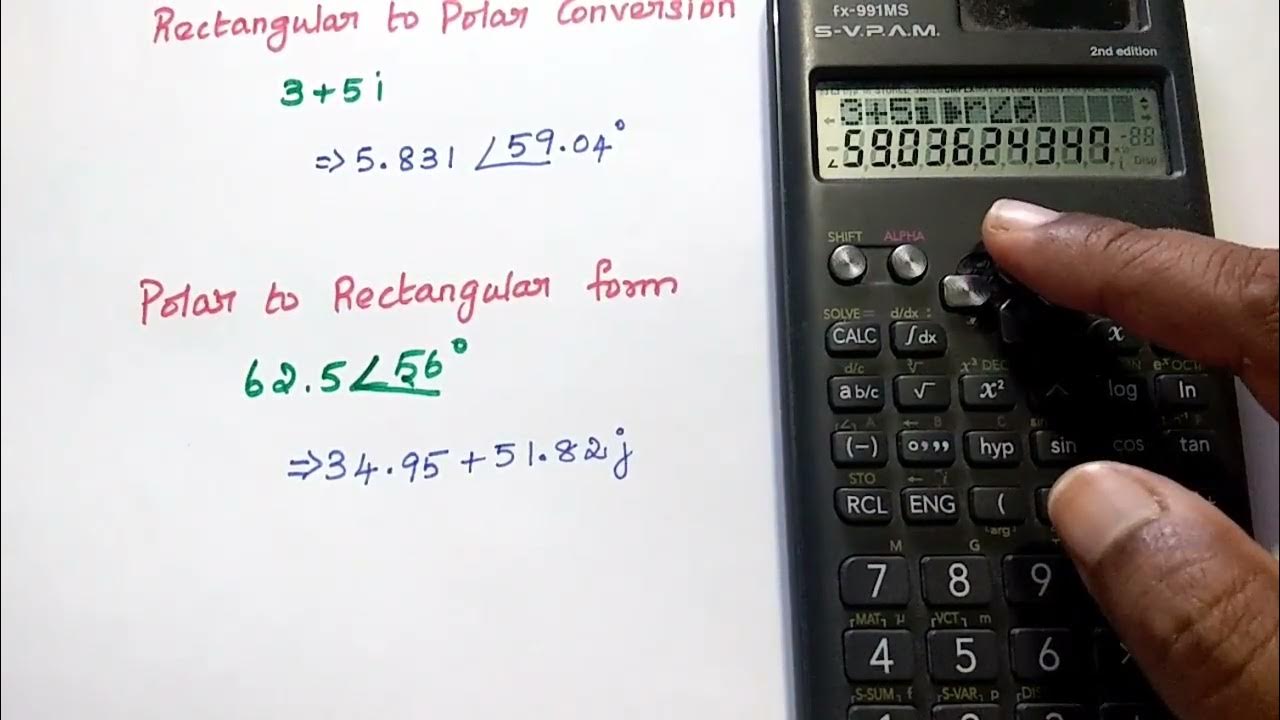 Rectangular to Polar Conversion
3+5i
⇒ 5.831 ∠59.04°
Polar to Rectangular form
62.5∠56°
⇒ 34.95 + 51.82j
fx-991MS
S-V.P.A.M.
2nd edition
3+5i▶r∠θ
∠ 59.03624347
SHIFT ALPHA
SOLVE = d/dx :
CALC ∫dx x
d/c ∛ x³ DEC eˣ OCT
a b/c √ x² ^ log ln
∠ A ← B C
(−) °,,, hyp sin cos tan
STO ← i
RCL ENG (
arg
M G
7 8 9
MAT µ VCT m
4 5 6
S-SUM f S-VAR p